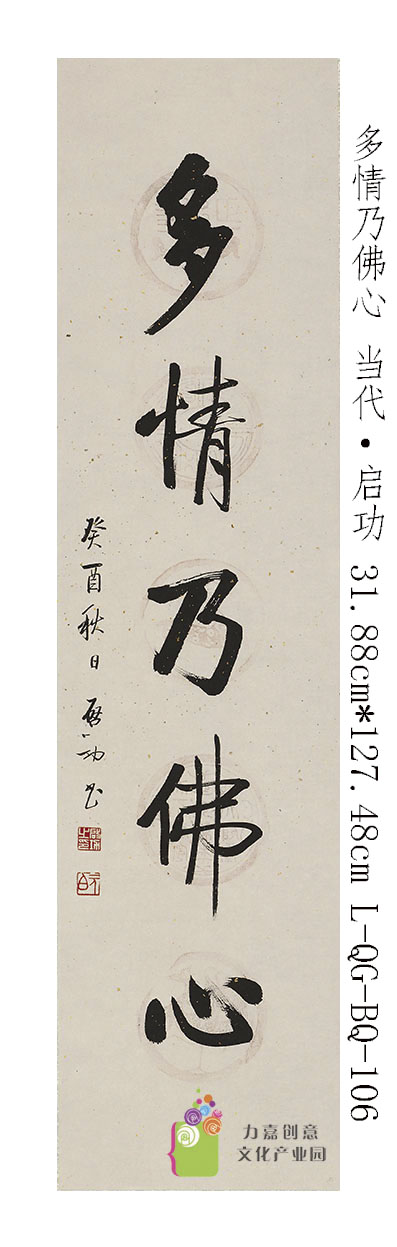 多情乃佛心
癸酉秋日 启功书
多情乃佛心 当代·启功 31.88cm*127.48cm L-QG-BQ-106
力嘉创意
文化产业园